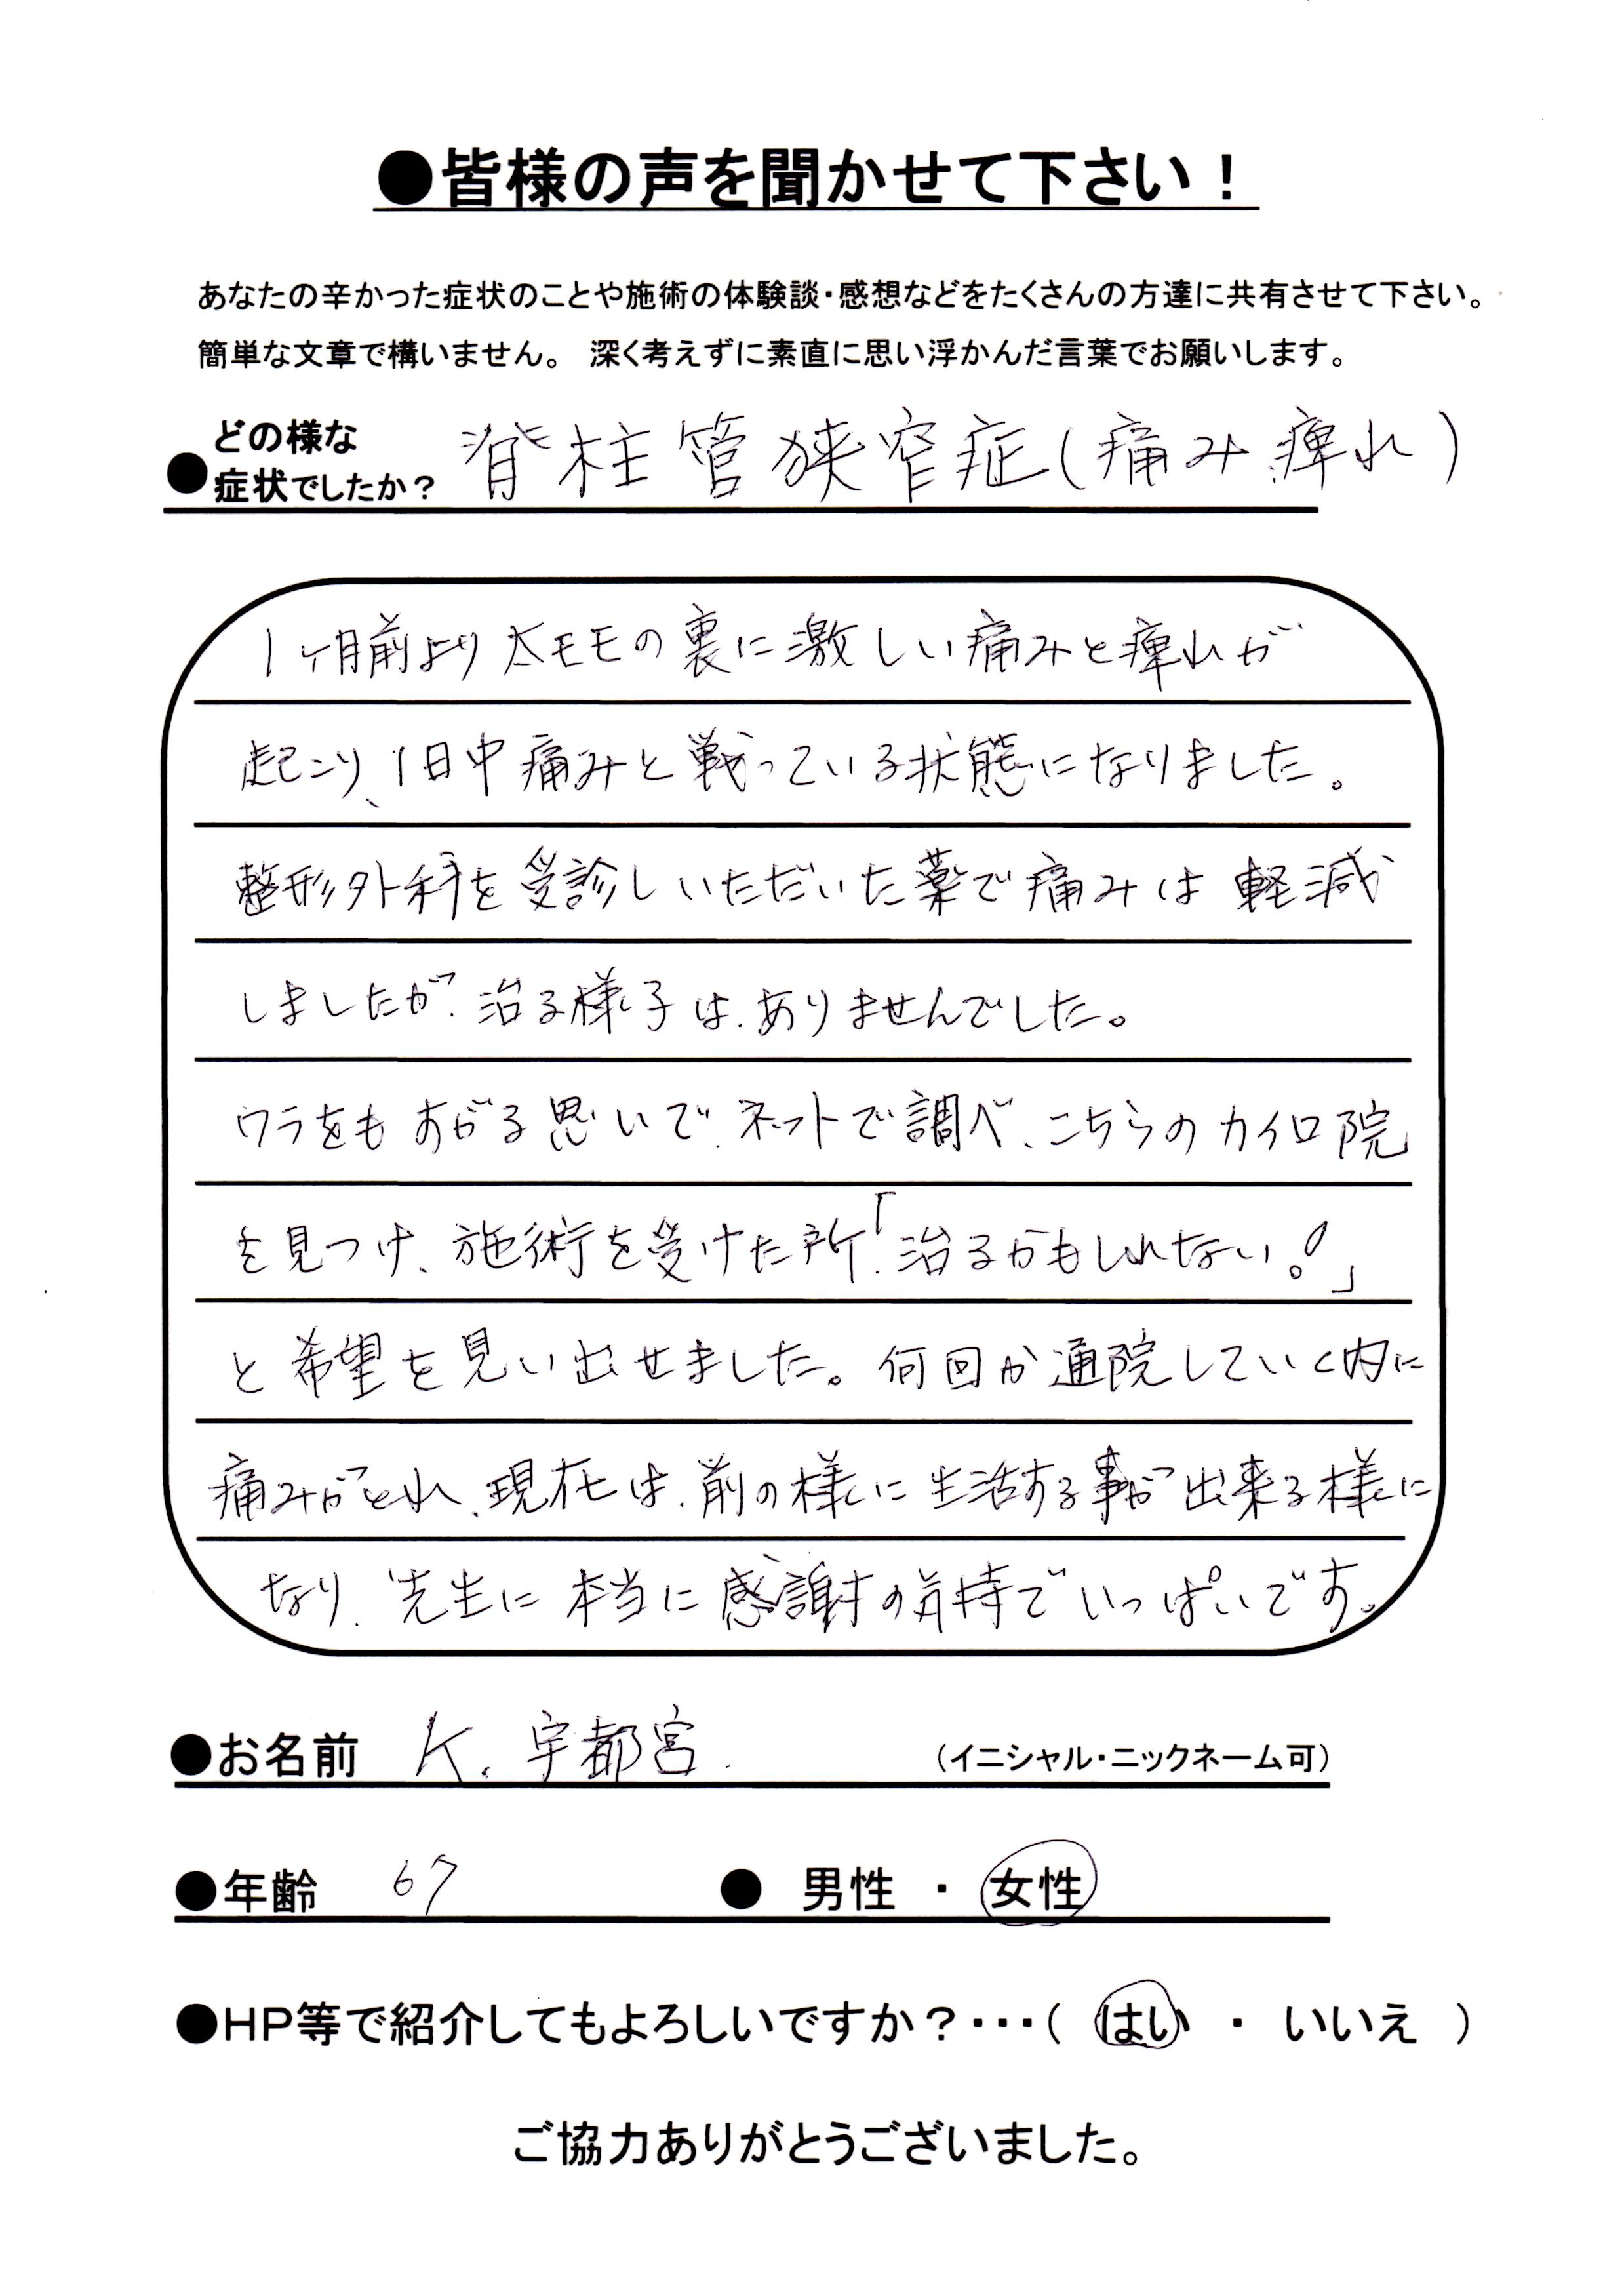 ●皆様の声を聞かせて下さい！
あなたの辛かった症状のことや施術の体験談・感想などをたくさんの方達に共有させて下さい。
簡単な文章で構いません。 深く考えずに素直に思い浮かんだ言葉でお願いします。
●どの様な
症状でしたか？ 脊柱管狭窄症(痛み、痺れ)
1ヶ月前より太モモの裏に激しい痛みと痺れが
起こり、1日中痛みと戦っている状態になりました。
整形外科を受診しいただいた薬で痛みは軽減
しましたが、治る様子は、ありませんでした。
ワラをもすがる思いで、ネットで調べ、こちらのカイロ院
を見つけ、施術を受けた所、「治るかもしれない！」
と希望を見い出せました。何回か通院していく内に
痛みがとれ、現在は、前の様に生活する事が出来る様に
なり、先生に本当に感謝の気持でいっぱいです。
●お名前 K. 宇都宮. （イニシャル・ニックネーム可）
●年齢 67 ● 男性 ・ 女性
●ＨＰ等で紹介してもよろしいですか？・・・（ はい ・ いいえ ）
ご協力ありがとうございました。